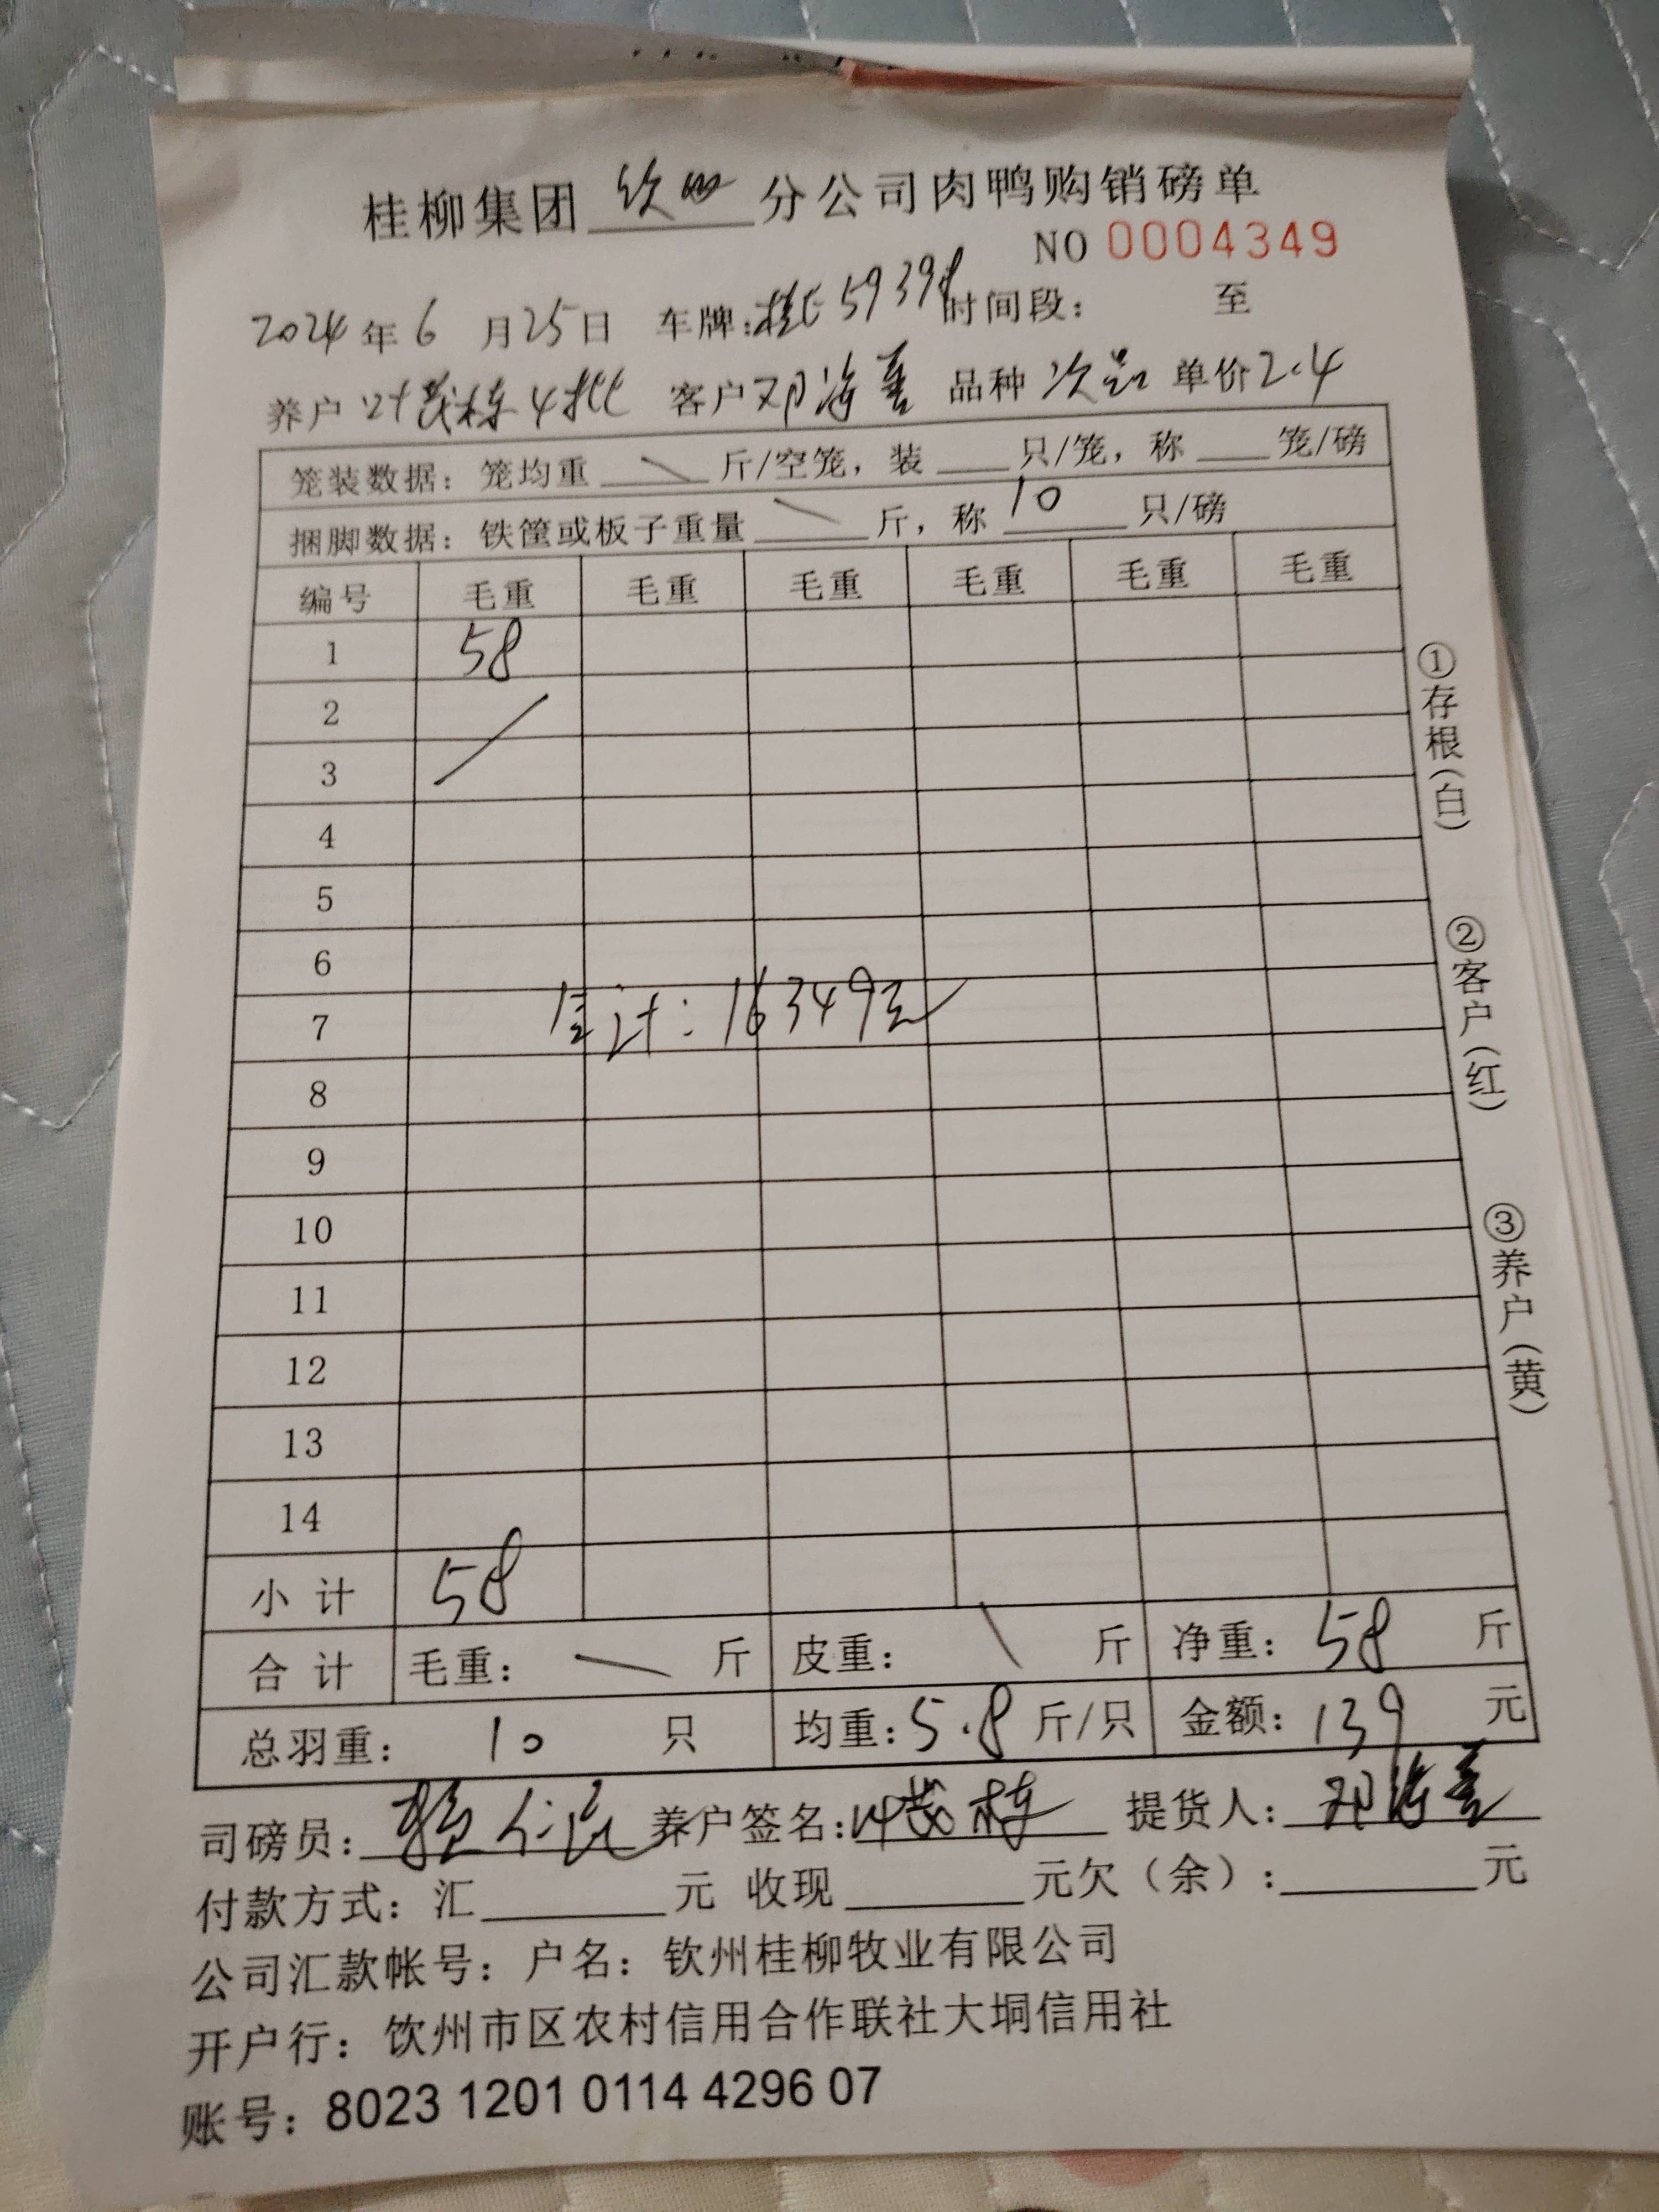 桂柳集团 钦州 分公司肉鸭购销磅单
NO 0004349
2024年6月25日 车牌:桂E59398 时间段: 至
养户 叶茂栋4批 客户 邓海善 品种 次品 单价2.4
笼装数据:笼均重 \ 斤/空笼,装 只/笼,称 笼/磅
捆脚数据:铁筐或板子重量 \ 斤,称 10 只/磅
编号 毛重 毛重 毛重 毛重 毛重 毛重
1 58
2
3
4
5
6
7 计:16349元
8
9
10
11
12
13
14
小计 58
合计 毛重: 斤 皮重: \ 斤 净重:58 斤
总羽重: 10 只 均重:5.8 斤/只 金额:139 元
司磅员: 养户签名:叶茂栋 提货人:邓海善
付款方式:汇 元 收现 元欠(余): 元
公司汇款帐号:户名:钦州桂柳牧业有限公司
开户行:饮州市区农村信用合作联社大垌信用社
账号:8023 1201 0114 4296 07
①存根(白)
②客户(红)
③养户(黄)